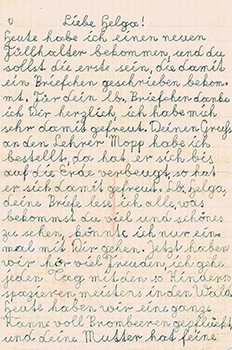 Liebe Helga!
Heute habe ich einen neuen
Füllhalter bekommen, und du
sollst die erste sein, die damit
ein Briefchen geschrieben bekom-
mt. Für dein lb. Briefchen danke
ich Dir herzlich, ich habe mich
sehr damit gefreut. Deinen Gruß
an den Lehrer Mopp habe ich
bestellt, da hat er sich bis
auf die Erde verbeugt, so hat
er sich damit gefreut. Lb. Helga,
deine Briefe lese ich alle, was
bekommst du viel und schönes
zu sehen, könnt ich nur ein-
mal mit Dir gehen. Jetzt haben
wir hier viel Freuden, ich gehe
jeden Tag mit den 10 Kindern
spazieren, meistens in den Wald.
Heute haben wir eine ganze
Kanne voll Brombeeren gepflückt
und deine Mutter hat feine